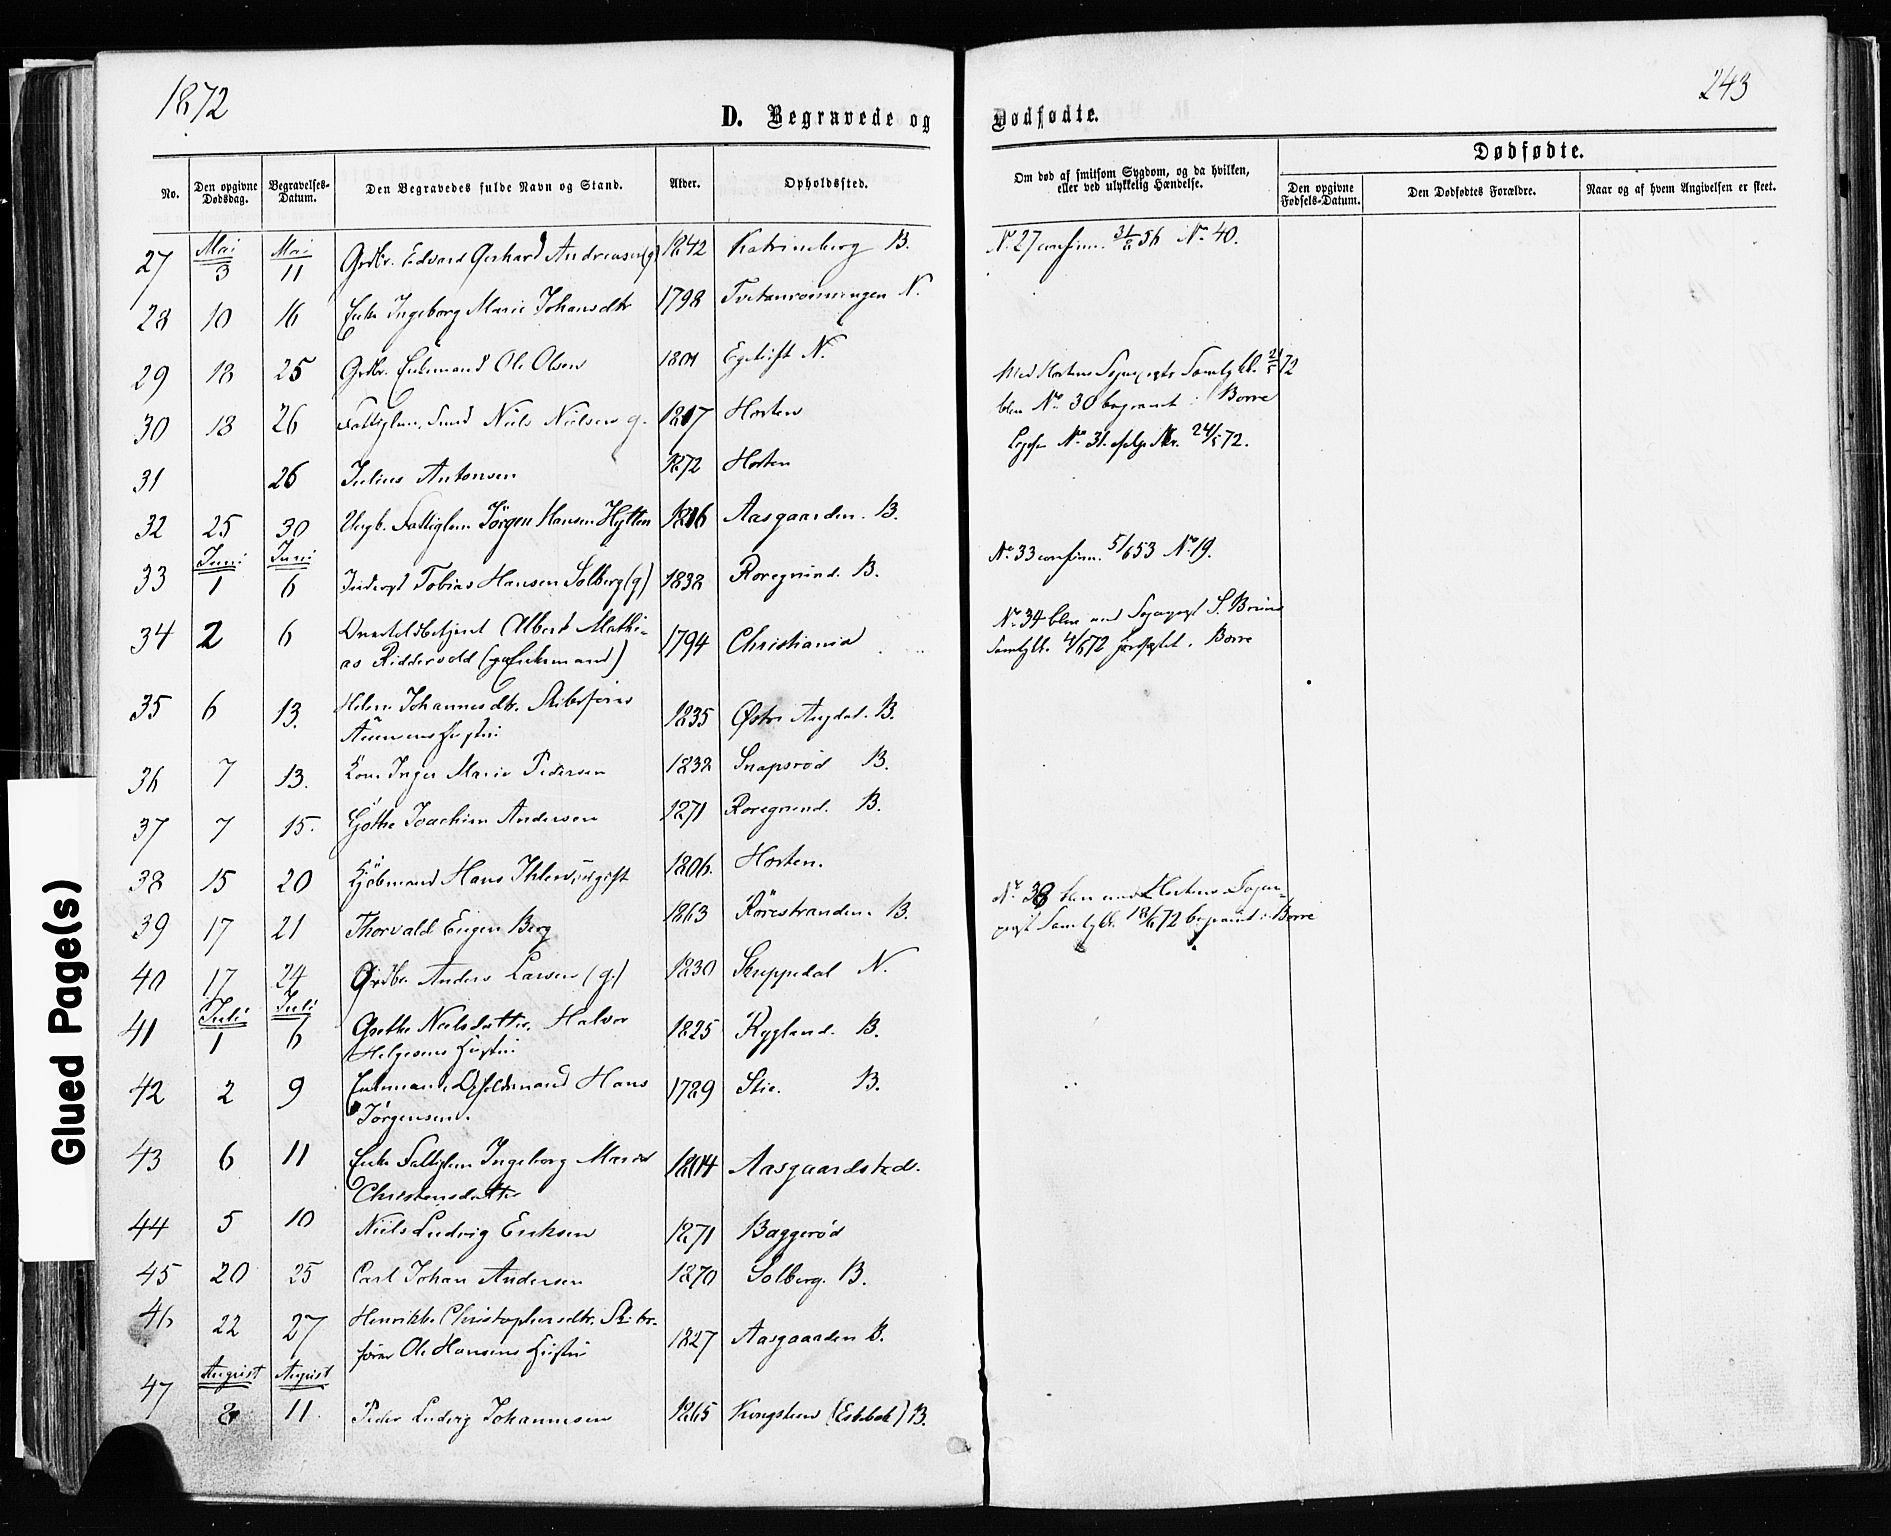 1872
243
D. Begravede og Dødfødte.
No. Den opgivne Dødsdag. Begravelses-Datum. Den Begravedes fulde Navn og Stand. Alder. Opholdssted.
Om død af smitsom Sygdom, og da hvilken, eller ved ulykkelig Hændelse.
Dødfødte.
Den opgivne Fødsels-Datum. Den Dødfødtes Forældre. Naar og af hvem Angivelsen er skeet.
Mai Mai
27 3 11 Grdbr. Edvard Gerhard Andreasen (g) 1842 Katrineberg B. No. 27 confirm. 56 No. 40.
28 10 16 Enke Ingeborg Marie Johansdtr 1798 N.
29 18 25 Grdbr. Enkemand Ole Olsen 1801 N.
30 18 26 Niels Nielsen g. 1817 Horten
Med Hortens 72
No. 30 begravet i Borre
31 26 Julius Antonsen 1872 Horten
No. 31. 24/5 72.
32 25 30 Ungk. Fattiglem Jörgen Hansen Hytten 1816 Aasgaarden. B.
Juni Juni
33 1 6 Inderst Tobias Hansen Solberg (g) 1838 Roregrind. B. No. 33 confirm. 5/6 53 No. 19.
34 2 6 Albert Mathi-
as Riddervold (Enkemand) 1794 Christiania
No. 34 blev med
4/6 72 Borre
35 6 13. Helene Johannesdtr. Skibsförer
Hustru 1835 Østre B.
36 7 13. Kone Inger Marie Pedersen 1832 Snapsrød B.
37 7 15. Göthe Joachim Andersen 1871 Roregrind. B.
38 15 20 Kjöbmand Hans Ihlen, ugift 1806. Horten.
No. 38 blev med Hortens Sogne-
18/6 72 begravet i Borre
39 17 21 Thorvald Eugen Berg 1863 Rørestranden. B.
40 17 24 Grdbr. Anders Larsen (g.) 1830 Skuppedal N.
Juli Juli
41 1 6 Grethe Nielsdatter, Halvor
Helgesens Hustru 1825 Rygland. B.
42 2 9 Enkemand Hans
Jörgensen. 1789 Stie. B.
43 6 11 Enke Fattiglem Ingeborg Marie
Christensdatter 1804 Aasgaardstrd.
44 5 10 Niels Ludvig Eriksen 1871 Baggerød
45 20 25 Carl Johan Andersen 1870 Solberg. B.
46 22 27 Henrikke Christophersdtr. Skibs-
förer Ole Hansens Hustru 1827 Aasgaarden B.
August August
47 8 11. Peder Ludvig Johannesen 1865 Kongsteen (Esbek) B.
Glued Page(s)